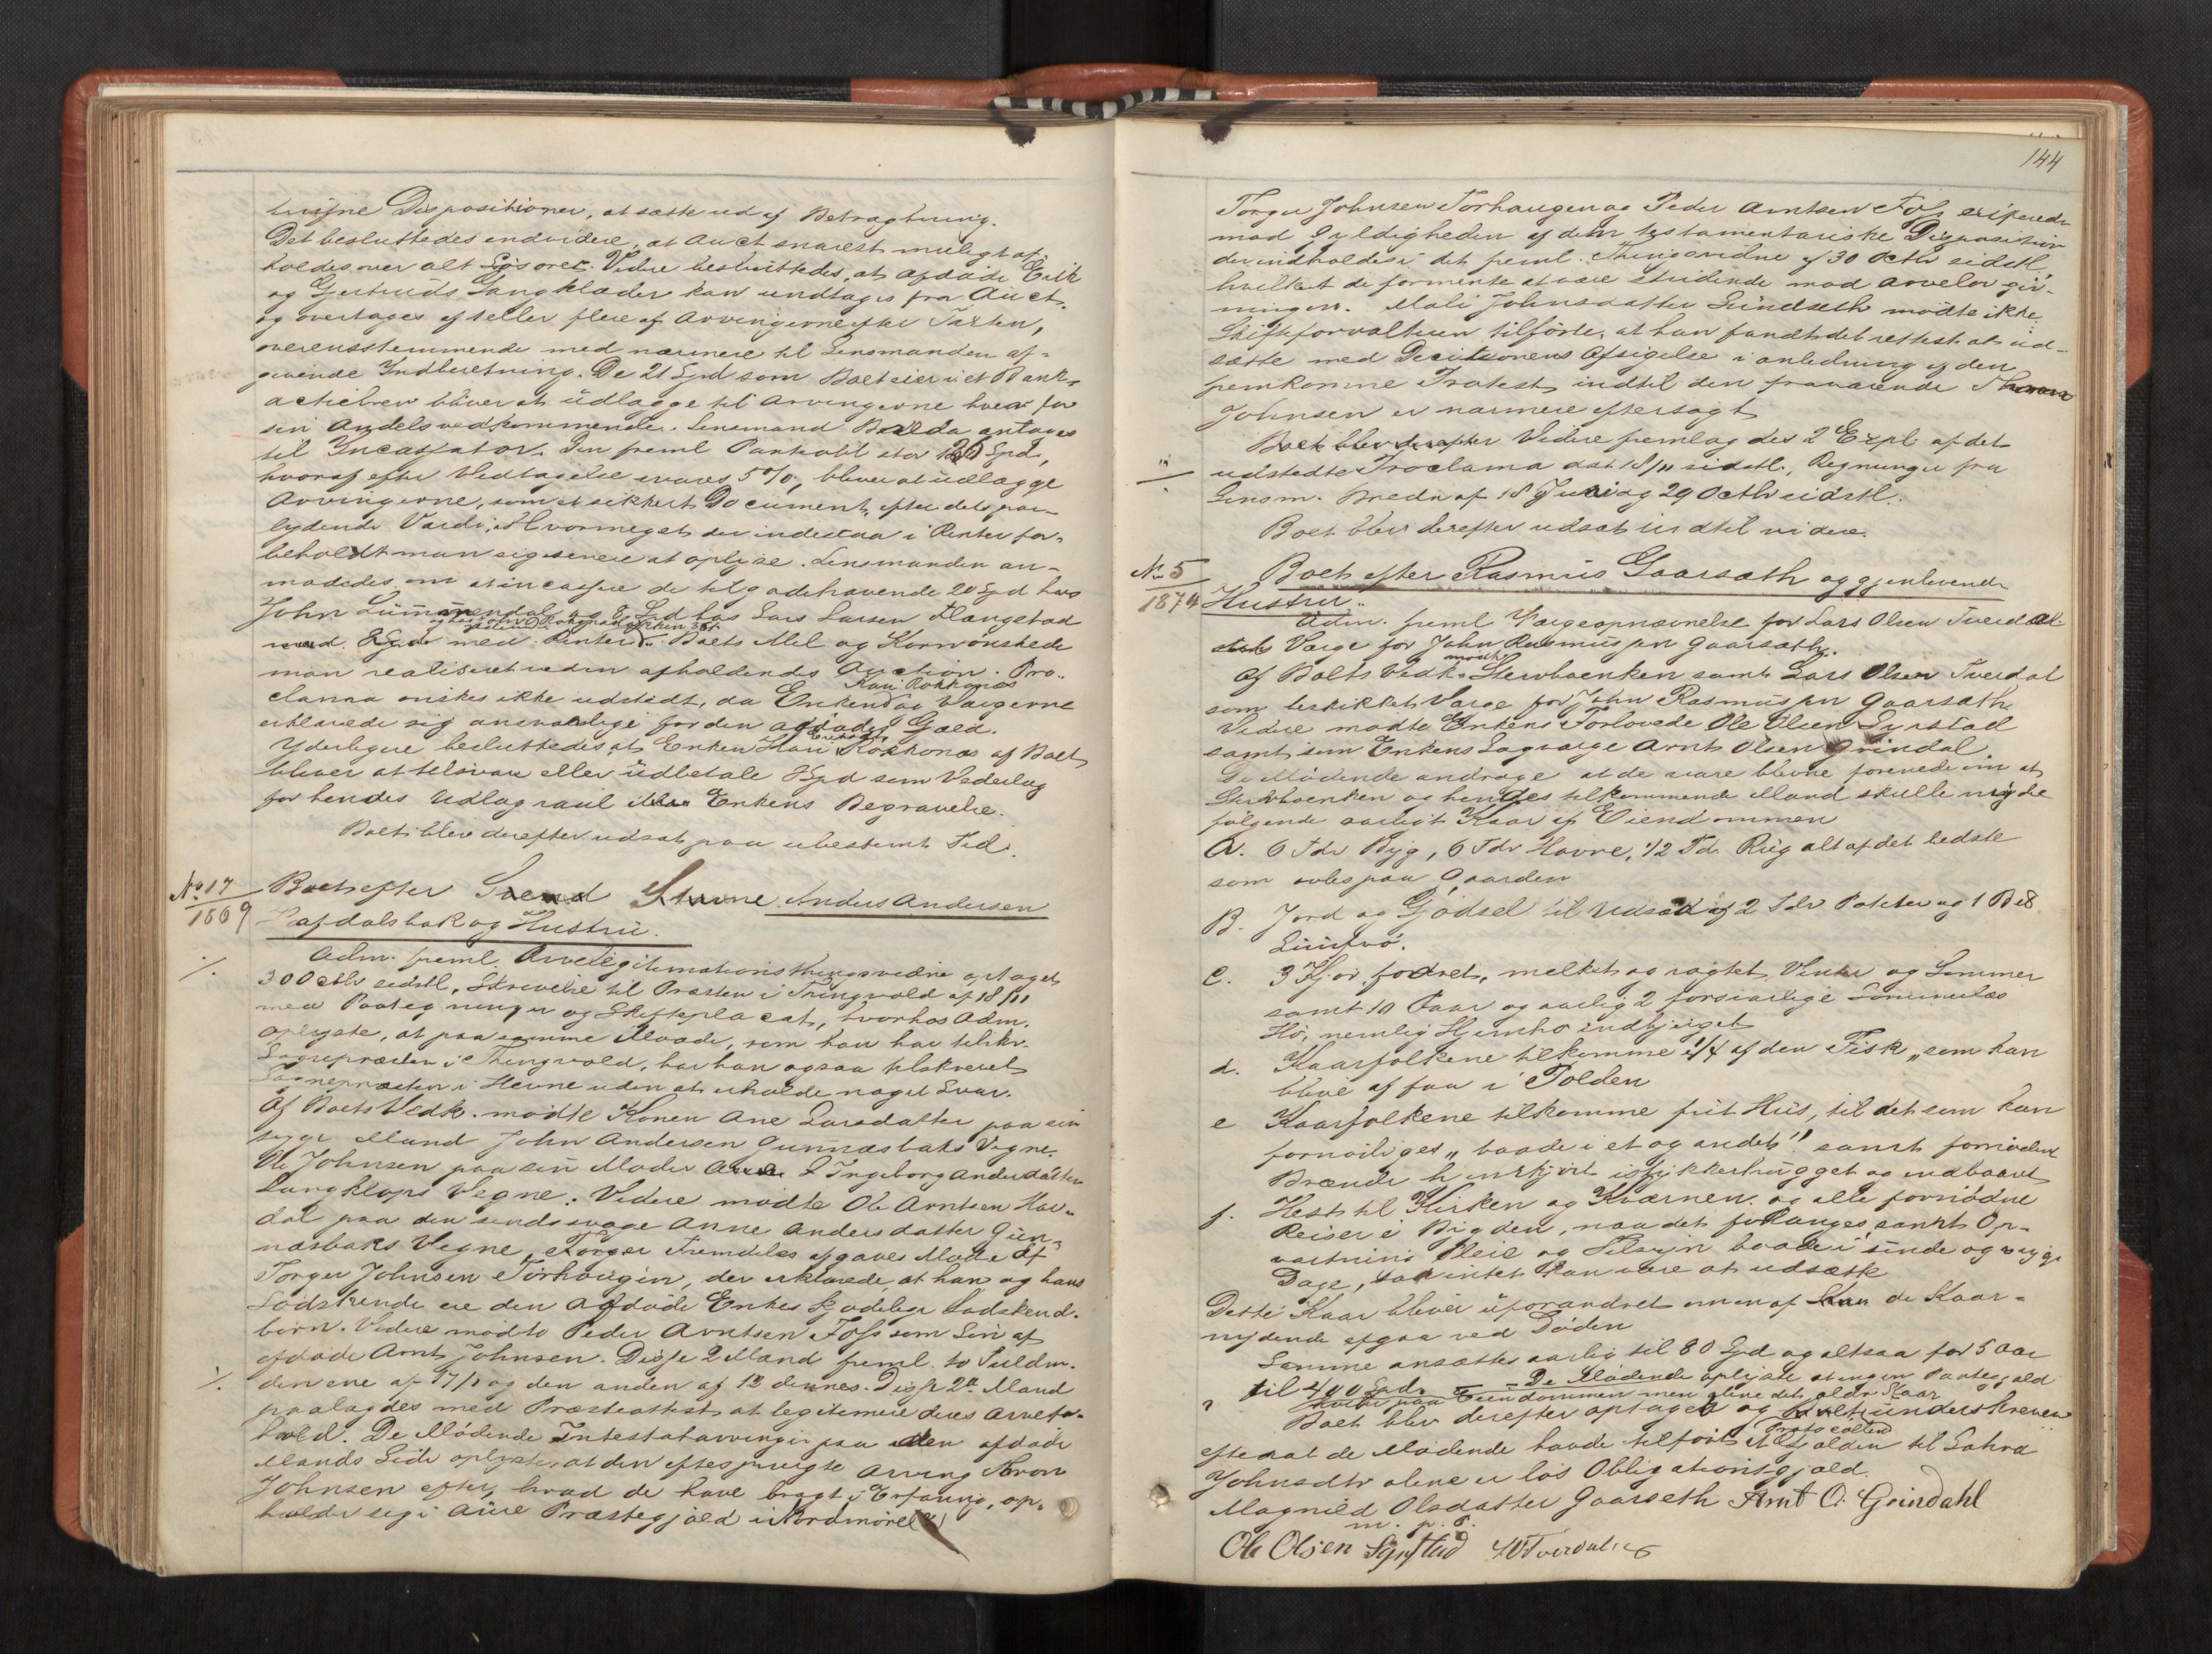 trufne Dispositioner, at sætte ud af Betragtning.
Det besluttedes endvidere, at Auct snarest muligt af-
holdes over alt Løsøret. Videre besluttedes, at afdøde Erik
og Gjertruds Gangklæder kan undtages fra Auct.
og overtages af eller flere af Arvingerne efter Taxten,
overensstemmende med nærmere til Lensmanden af-
givende Indberetning. De 21 Spd som Boet eier i et Bank-
actiebrev bliver at udlægge til Arvingerne hver for
sin Andels vedkommende. Lensmand antages
til Incassator. Den freml Panteobl stor Spd,
hvoraf efter Vedtagelse svares 5%, bliver at udlægge
Arvingerne, som et sikkert Document, efter dets paa-
lydende Værdi. Hvormeget der indestaa i Renter for-
beholdt man sig senere at oplyse. Lensmanden an-
modedes om at incassere de tilgodehavende 20 Spd hos
John og 8 Spd hos Lars Larsen Hangstad
med Renter. Boets Mel og Korn ønskede
man realiseret uden afholdende Auction. Pro-
clama ønskes ikke udstedt, da Enken og Værgerne
erklærede sig ansvarlige for den afdødes Gjæld.
Yderligere besluttedes, at Enken Kari Rokkonæs af Boet
bliver at tilsvare eller udbetale Spd som Vederlag
for hendes Udlag Enkens Begravelse.
Boet blev derefter udsat paa ubestemt Tid.
No 17
1869
Boet efter Anders Andersen
Hafdalsbak og Hustru.
Adm. freml. Arvelegitimationsthingsvidne optaget
30 Octb sidstl, Skrivelse til Præsten i Thingvold af 18/11
med Paategninger og Skifteplacat, hvorhos Adm.
oplyste, at paa samme Maade, som han har tilskr.
Sognepræsten i Thingvold, har han ogsaa tilskrevet
Sognepræsten i Hevne uden at erholde noget Svar.
Af Boets Vedk. mødte Konen Ane Larsdatter paa sin
syge Mand John Andersen Gunnæsbaks Vegne.
Ole Johnsen paa sin Moder Ingeborg Andersdatter
Langklops Vegne. Videre mødte Ole Arntsen Hav-
dal paa den sindssvage Anne Andersdatter Gun-
næsbaks Vegne. Fremdeles afgaves Møde af
Torger Johnsen Torhaugen, der erklærede, at han og hans
Sødskende ere den afdøde Enkes kjødelige Sødskend-
børn. Videre mødte Peder Arntsen Foss som Søn af
afdøde Arnt Johnsen. Disse 2 Mænd freml. to Fuldm.
den ene af 17/ og den anden af 12 dennes. Disse 2de Mænd
paalagdes med Præsteattest at legitimere deres Arvefor-
hold. De Mødende Intestatarvinger paa den afdøde
Mands Side oplyste, at den efterspurgte Arving
Johnsen efter, hvad de have bragt i Erfaring, op-
holder sig i Aure Præstegjæld i Nordmøre.
144
Torger Johnsen Torhaugen og Peder Arntsen Foss
mod Gyldigheden af den testamentariske Disposition
der indholdes i det freml. Thingsvidne af 30 Octbr sidstl.
hvilket de formente at være stridende mod Arvelovgiv-
ningen. Mali Johnsdatter Lundseth mødte ikke.
Skifteforvalteren tilførte, at han fandt det rettest at ud-
sætte med Decisionens Afsigelse i anledning af den
fremkomne Protest indtil den fraværende
Johnsen er nærmere eftersøgt
Boet blev derefter Videre fremlagdes 2 Expl. af det
udstedte Proclama dat 18/11 sidstl., Regninger fra
Lensm. Bredn af 18 Juni og 29 Octb sidstl.
Boet blev derefter udsat indtil videre.
No 5
1874
Boet efter Rasmus Gaarsæth og gjenlevende
Hustru.
Adm. freml Værgeopnævnelse for Lars Olsen Tverdal
som Værge for John Rasmussen Gaarsæth.
Af Boets Vedk. mødte Sterboenken samt Lars Olsen Tverdal
som beskikket Værge for John Rasmussen Gaarsæth
Videre mødte Enkens Forlovede Ole Olsen Syrstad
samt som Enkens Lagværge Arnt Olsen Grindal.
De Mødende androge at de vare blevne forenede om at
Sterboenken og hendes tilkommende Mand skulle nyde
følgende aarligt Kaar af Eiendommen
A. 6 Tdr Byg, 6 Tdr Havre, 1/2 Td. Rug alt af det bedste
som avles paa Gaarden
B. Jord og Gjødsel til Udsæd af 2 Tdr Poteter og 1 Bd
Linfrø.
C. 3 Kjør fodret, melket og røgtet Vinter og Sommer
samt 10 Faar og aarlig 2 forsvarlige Sommerlæs
Hø, nemlig Hjemhø indbjerget
d. Kaarfolkene tilkomme 1/4 af den Fisk „som kan
blive af faa i Polden
e Kaarfolkene tilkomme frit Hus, til det som kan
fornøiliges „baade i et og andet" samt fornøden
Brænde hjemkjørt istykkerhugget og indbaaret
f. Hest til Kirken og Kværnen og alle fornødne
Reiser i Bygden, naar det forlanges, samt Op-
vartning Pleie og Tilsyn baade i sunde og syge
Dage, saa intet kan være at udsætte
Dette Kaar bliver uforandret om en af de Kaar-
nydende afgaa ved Døden
Samme ansættes aarlig til 80 Spd og altsaa for 5 Aar
til 400 Spd. De Mødende oplyste at ingen Pantegjæld
hviler paa Eiendommen men alene det ældre Kaar
Boet blev derefter optaget og Protocollen underskreven
efterat de Mødende havde tilføiet at Gjælden til Sahra
Johnsdtr alene er løs Obligationsgjæld.
Magnild Olsdatter Gaarseth Arnt O. Grindahl
m. p. P.
Ole Olsen Syrstad LOTverdal